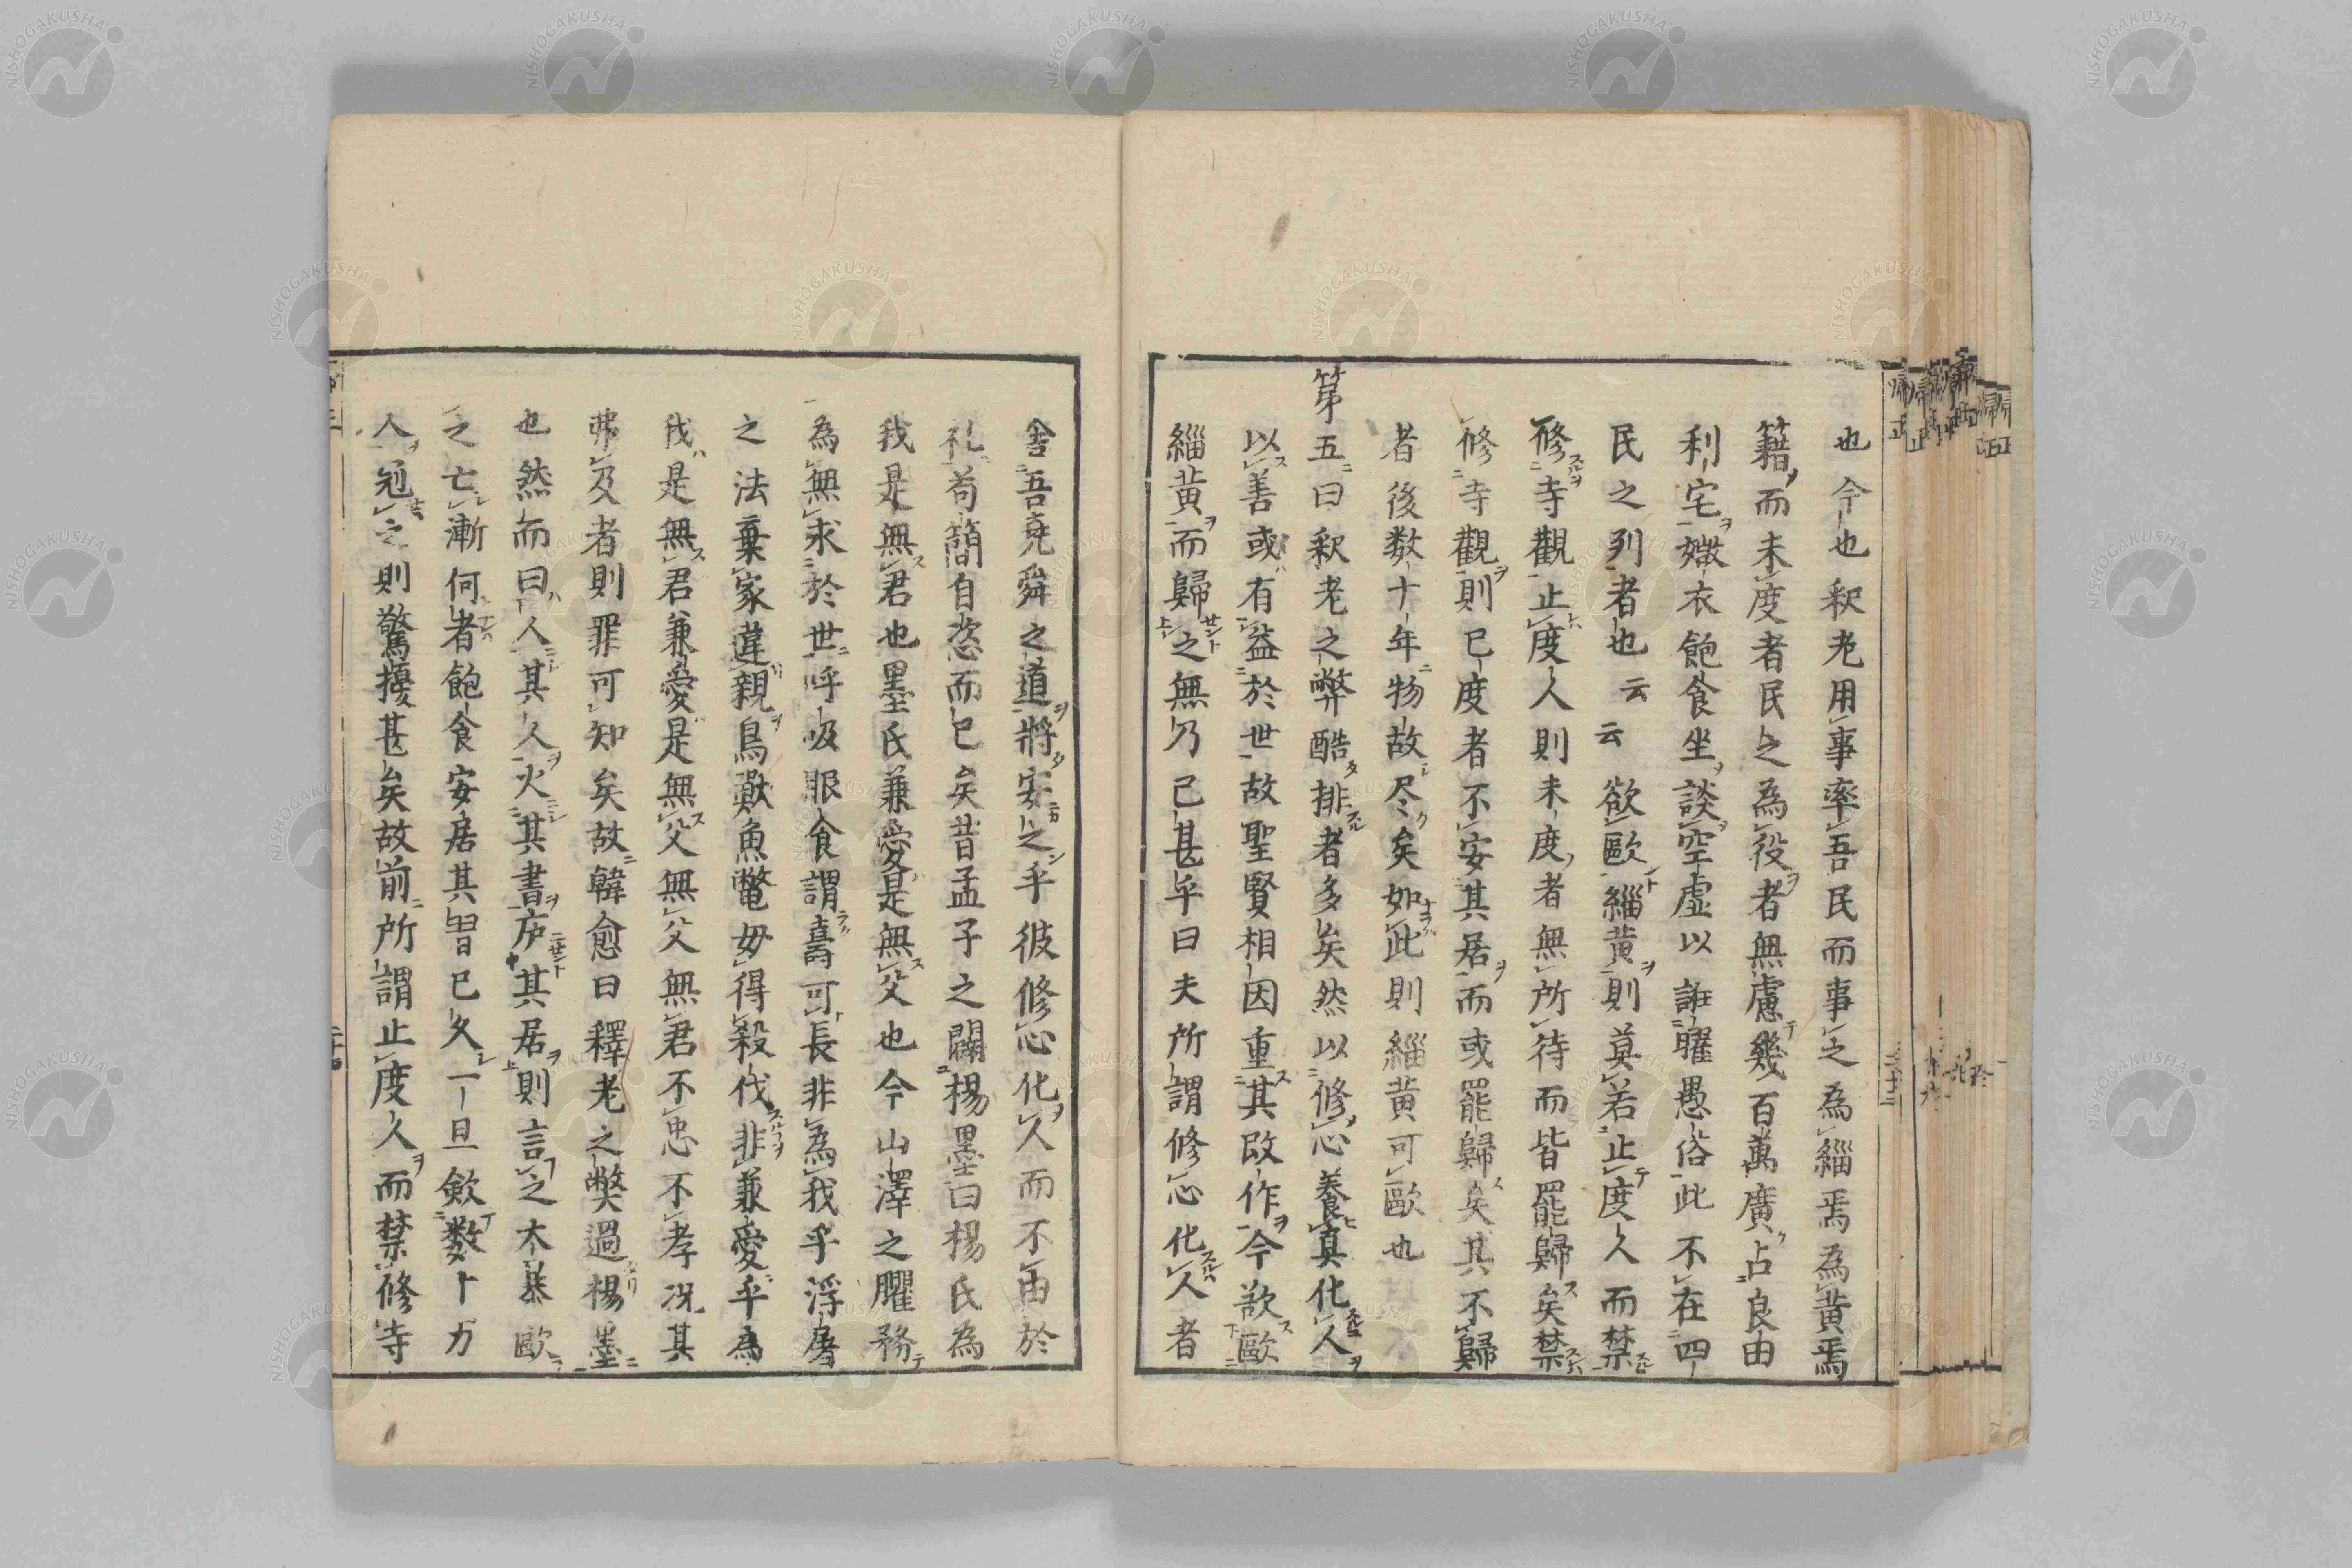 也今也釈老用事率吾民而事之為緇焉為黄焉
籍而未度者民之為役者無慮幾百萬廣占良田
利宅媺衣飽食坐談空虚以誑曜愚俗此不在四
民之列者也云云欲歐緇黄則莫若止度人而禁
修寺觀止度人則未度者無所待而皆罷歸矣禁
修寺觀則已度者不安其居而或罷歸矣其不歸
者後数十年物故尽矣如此則緇黄可歐也
第五曰釈老之弊酷排者多矣然以修心養真化人
以善或有益於世故聖賢相因重其改作今欲歐
緇黄而歸之無乃已甚乎曰夫所謂修心化人者
舍吾堯舜之道將安之乎彼修心化人而不由於
礼苟簡自恣而已矣昔孟子之闢楊墨曰楊氏為
我是無君也墨氏兼愛是無父也今山澤之臞務
為無求於世呼吸服食謂壽可長非為我乎浮屠
之法棄家違親鳥獣魚鼈毋得殺伐非兼愛乎為
我是無君兼愛是無父無父無君不忠不孝况其
弗及者則罪可知矣故韓愈曰釋老之弊過楊墨
也然而曰人其人火其書庐其居則言之太暴歐
之亡漸何者飽食安居其習已久一旦斂数十万
人冠之則驚擾甚矣故前所謂止度人而禁修寺
NISHOGAKUSHA